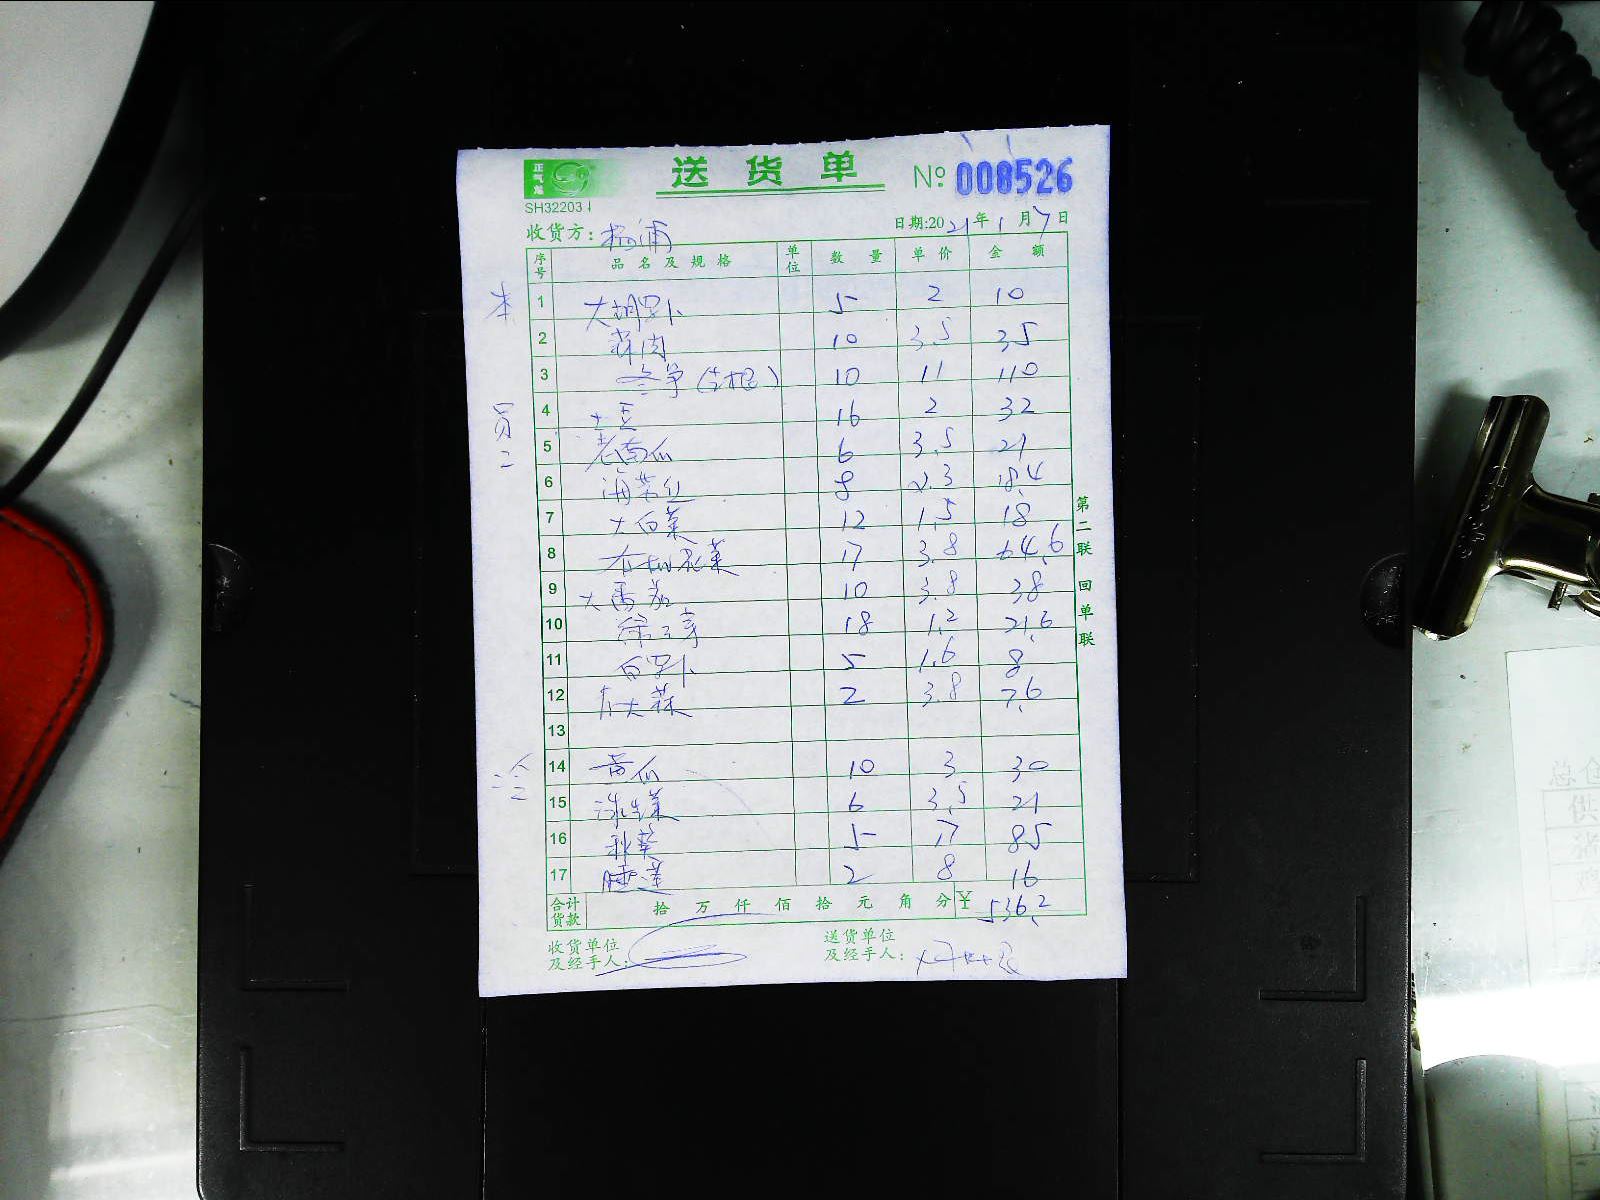 正气龙
送 货 单 Nº 008526
SH32203
收货方: 杨浦 日期:2021年1月7日
序号 品名及规格 单位 数量 单价 金额
本 1 大胡萝卜 5 2 10
2 蒜肉 10 3.5 35
3 冬笋 10 11 110
4 土豆 16 2 32
员二 5 老南瓜 6 3.5 21
6 海带丝 8 2.3 18.4
7 大白菜 12 1.5 18
8 有机花菜 17 3.8 64.6
9 大番茄 10 3.8 38
10 绿豆芽 18 1.2 21.6
11 白萝卜 5 1.6 8
12 大蒜 2 3.8 7.6
13
14 黄瓜 10 3 30
15 球生菜 6 3.5 21
16 秋葵 5 17 85
17 睡莲 2 8 16
合计货款 拾 万 仟 佰 拾 元 角 分 ¥ 536.2
收货单位及经手人:
送货单位及经手人:
第二联 回单联
总仓
供
猪
鸡